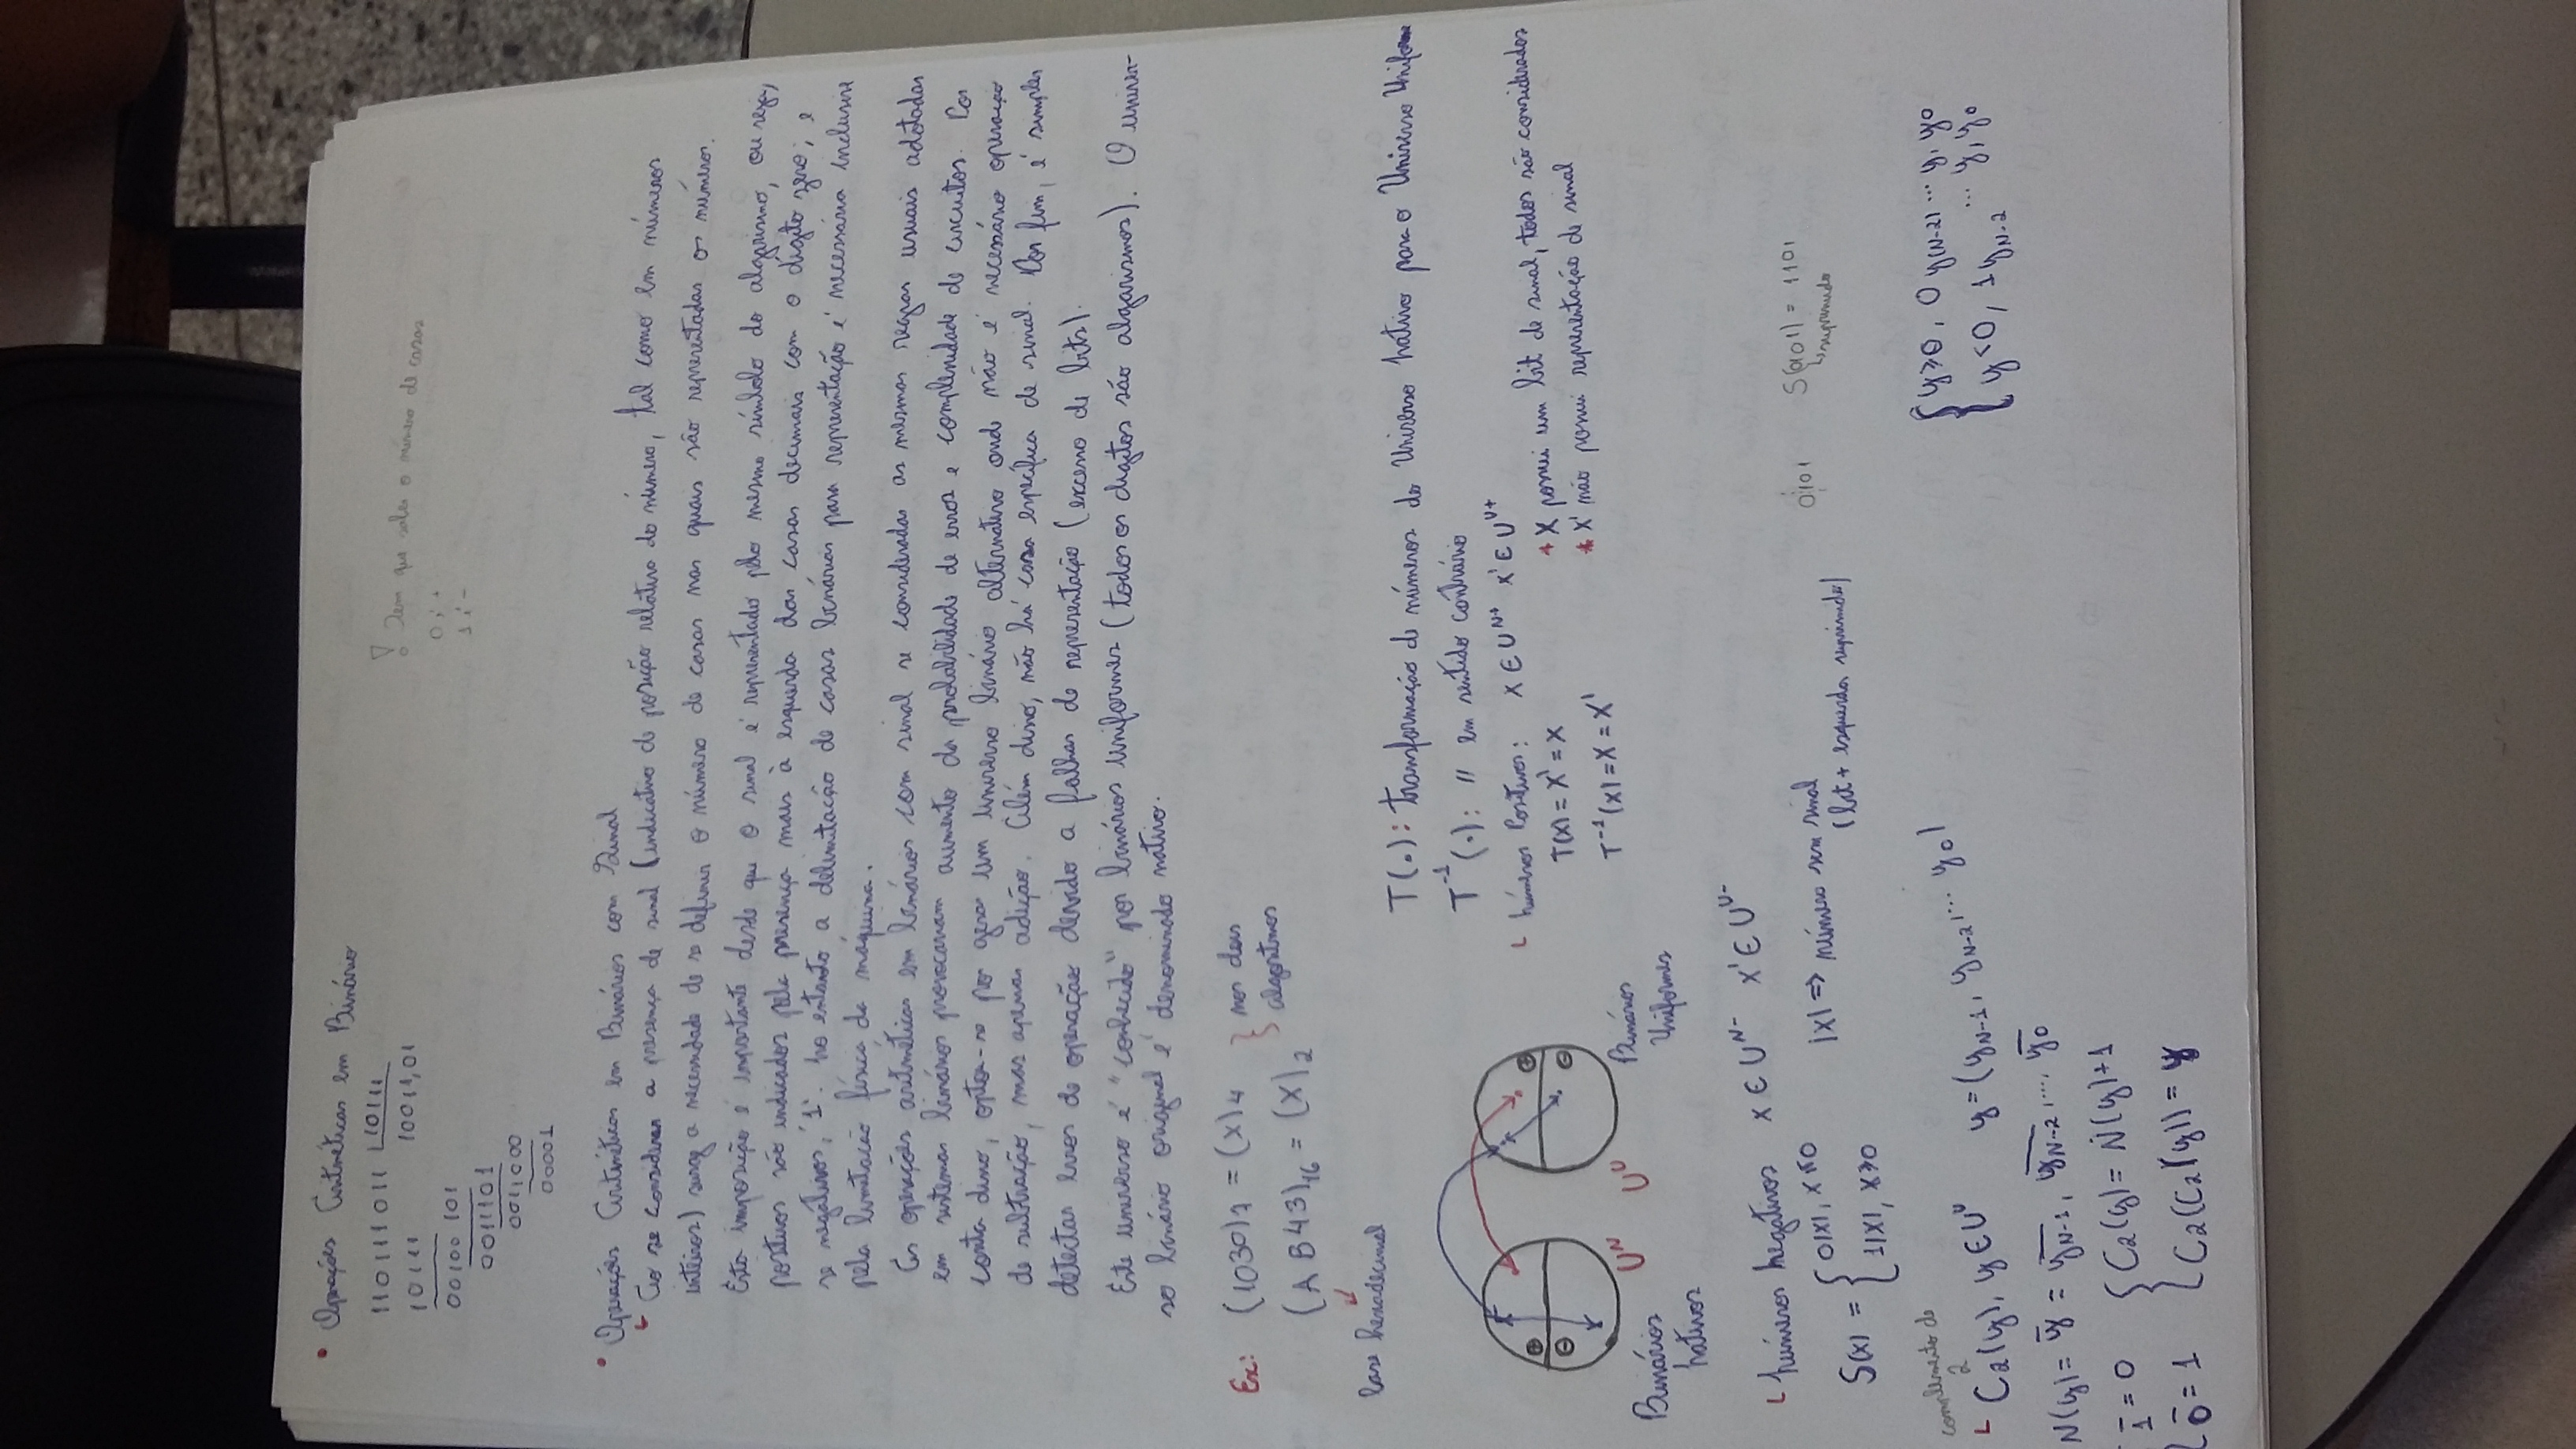 • Operações Aritméticas em Binário
110111011 | 10111
10111 10011,01
00100 101
0011101
0011000
00001
! Tem que saber o número de casas
0 : +
1 : -
• Operações Aritméticas em Binários com Sinal
Ao se considerar a presença de sinal (indicativo de posição relativa do número, tal como em números
inteiros) surge a necessidade de se definir o número de casas nas quais são representadas os números.
Esta imposição é importante desde que o sinal é representado pelo mesmo símbolo do algarismo, ou seja,
positivos são indicados pela presença mais à esquerda das casas decimais com o dígito zero; e
se negativos, '1'. No entanto a delimitação de casas binárias para representação é necessária inclusive
pela limitação física da máquina.
As operações aritméticas em binários com sinal se consideradas as mesmas regras usuais adotadas
em sistemas binários provocariam aumento da probabilidade de erros e complexidade de circuitos. Por
conta disso, optou-se por gerar um universo binário alternativo onde não é necessário operação
de subtração, mas apenas adição. Além disso, não há casa específica de sinal. Por fim, é simples
detectar erros de operação devido a falhas de representação (excesso de bits).
Este universo é "conhecido" por binários uniformes (todos os dígitos são algarismos). O univer-
so binário original é denominado nativo.
Ex: (1030)₇ = (X)₄ } nos dois
(AB43)₁₆ = (X)₂ algoritmos
base hexadecimal
T(.): transformação de números do Universo Nativo para o Universo Uniforme
T⁻¹(.): // em sentido contrário
Números Positivos: X ∈ Uᴺ⁺ X' ∈ Uᵁ⁺
T(X) = X' = X
T⁻¹(X) = X = X'
* X possui um bit de sinal, todos são considerados
* X' não possui representação de sinal
⊕ ⊖ ⊕ ⊖
Uᴺ Uᵁ
Binários
Nativos
Binários
Uniformes
Números Negativos X ∈ Uᴺ⁻ X' ∈ Uᵁ⁻
S(X) = { 0|X|, X ≤ 0
1|X|, X ≥ 0
|X| => número sem sinal
(bit + esquerda suprimido)
0101 S(0101) = 1101
↳ suprimido
complemento de
2
C₂(y), y ∈ Uᵁ y = (y_N-1, y_N-2, ... y₀)
{ y ≥ 0, 0 y(N-2) ... y₁ y₀
y < 0, 1 y_N-2 ... y₁ y₀
N(y) = ȳ = ȳ_N-1, ȳ_N-2, ..., ȳ₀
1̄ = 0 { C₂(y) = N(y) + 1
0̄ = 1 C₂(C₂(y)) = y